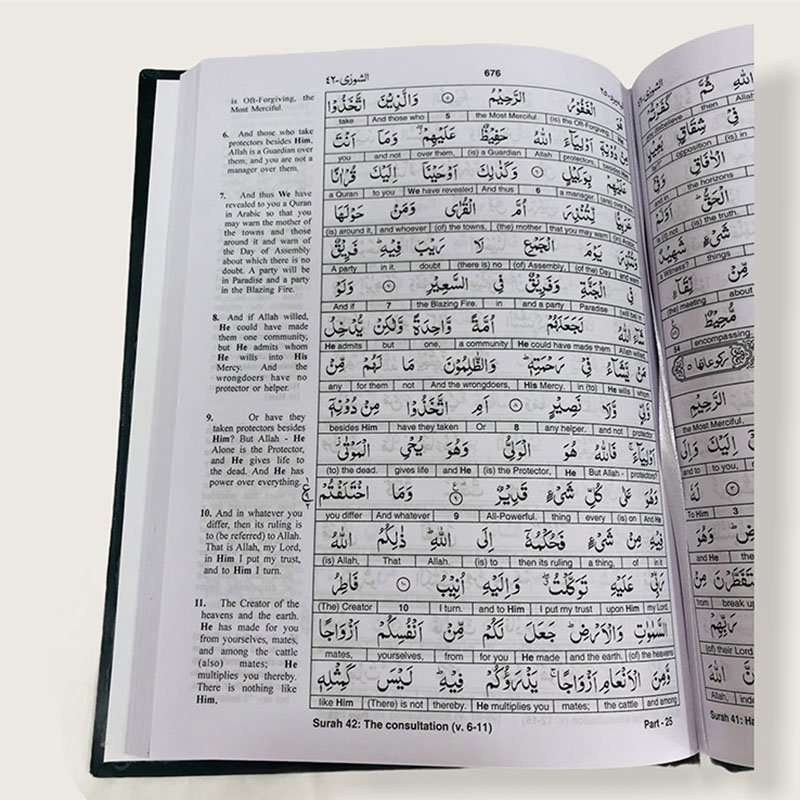 الشورى-٤٢
676
is Oft-Forgiving, the
Most Merciful.
6. And those who take
protectors besides Him,
Allah is a Guardian over
them, and you are not a
manager over them.
7. And thus We have
revealed to you a Quran
in Arabic so that you
may warn the mother of
the towns and those
around it and warn of
the Day of Assembly
about which there is no
doubt. A party will be
in Paradise and a party
in the Blazing Fire.
8. And if Allah willed,
He could have made
them one community,
but He admits whom
He wills into His
Mercy. And the
wrongdoers have no
protector or helper.
9. Or have they
taken protectors besides
Him? But Allah - He
Alone is the Protector,
and He gives life to
the dead. And He has
power over everything.
10. And in whatever you
differ, then its ruling is
to (be referred) to Allah.
That is Allah, my Lord,
in Him I put my trust,
and to Him I turn.
11. The Creator of the
heavens and the earth.
He has made for you
from yourselves, mates,
and among the cattle
(also) mates; He
multiplies you thereby.
There is nothing like
Him,
هُوَ الْغَفُوْرُ الرَّحِيْمُ ٥ وَالَّذِيْنَ اتَّخَذُوْا
take And those who 5 the Most Merciful. (is) the Oft-Forgiving,
مِنْ دُوْنِهٖۤ اَوْلِيَآءَ اللّٰهُ حَفِيْظٌ عَلَيْهِمْ وَمَاۤ اَنْتَ
you and not over them, (is) a Guardian Allah protectors,
عَلَيْهِمْ بِوَكِيْلٍ ٦ وَكَذٰلِكَ اَوْحَيْنَاۤ اِلَيْكَ قُرْاٰنًا
a Quran to you We have revealed And thus 6 a manager. over them
عَرَبِيًّا لِّتُنْذِرَ اُمَّ الْقُرٰى وَمَنْ حَوْلَهَا
(is) around it, and whoever (of) the towns, (the) mother that you may warn (in) Arabic,
وَتُنْذِرَ يَوْمَ الْجَمْعِ لَا رَيْبَ فِيْهِ فَرِيْقٌ
A party in it. doubt (there is) no (of) Assembly, (of the) Day and warn
فِى الْجَنَّةِ وَفَرِيْقٌ فِى السَّعِيْرِ ٧ وَلَوْ
And if 7 the Blazing Fire. in and a party Paradise (will be) in
شَآءَ اللّٰهُ لَجَعَلَهُمْ اُمَّةً وَّاحِدَةً وَّلٰكِنْ يُّدْخِلُ
He admits but one, a community He could have made them Allah willed,
مَنْ يَّشَآءُ فِيْ رَحْمَتِهٖ وَالظّٰلِمُوْنَ مَا لَهُمْ مِّنْ
any for them not And the wrongdoers, His Mercy. in (to) He wills whom
وَّلِيٍّ وَّلَا نَصِيْرٍ ٨ اَمِ اتَّخَذُوْا مِنْ دُوْنِهٖۤ
besides Him have they taken Or 8 any helper. and not protector
اَوْلِيَآءَ فَاللّٰهُ هُوَ الْوَلِيُّ وَهُوَ يُحْيِ الْمَوْتٰى
(to) the dead. gives life and He (is) the Protector, He But Allah - protectors?
وَهُوَ عَلٰى كُلِّ شَيْءٍ قَدِيْرٌ ٩ وَمَا اخْتَلَفْتُمْ
you differ And whatever 9 All-Powerful. thing every (is) on And He
فِيْهِ مِنْ شَيْءٍ فَحُكْمُهٗۤ اِلَى اللّٰهِ ذٰلِكُمُ اللّٰهُ
(is) Allah, That Allah. (is) to then its ruling a thing, of in it
رَبِّيْ عَلَيْهِ تَوَكَّلْتُ وَاِلَيْهِ اُنِيْبُ ١٠ فَاطِرُ
(The) Creator 10 I turn. and to Him I put my trust upon Him my Lord,
السَّمٰوٰتِ وَالْاَرْضِ جَعَلَ لَكُمْ مِّنْ اَنْفُسِكُمْ اَزْوَاجًا
mates, yourselves, from for you He made and the earth. (of) the heavens
وَّمِنَ الْاَنْعَامِ اَزْوَاجًا يَذْرَؤُكُمْ فِيْهِ لَيْسَ كَمِثْلِهٖ
like Him (There) is not thereby. He multiplies you mates; the cattle and among
Surah 42: The consultation (v. 6-11)
Part - 25
اللّٰهِ ثُمَّ كَفَرْتُمْ
you disbelieve then Allah
فِيْ شِقَاقٍ بَعِيْدٍ
opposition (is) in
الْاٰفَاقِ
the horizons
الْحَقُّ اَوَلَمْ
(is) the truth.
شَيْءٍ شَهِيْدٌ
a Witness? things
مِّنْ لِّقَآءِ
(the) meeting about
مُّحِيْطٌ
54 encompassing.
الرَّحِيْمِ
the Most Merciful.
اِلَيْكَ وَاِلَى
and to to you,
٣ لَهٗ
To Him 3
وَهُوَ
and He the
يَتَفَطَّرْنَ
from break up
رَبِّهِمْ
(of) their Lord
اِنَّ اللّٰهَ
Allah,
Surah 41: Ha